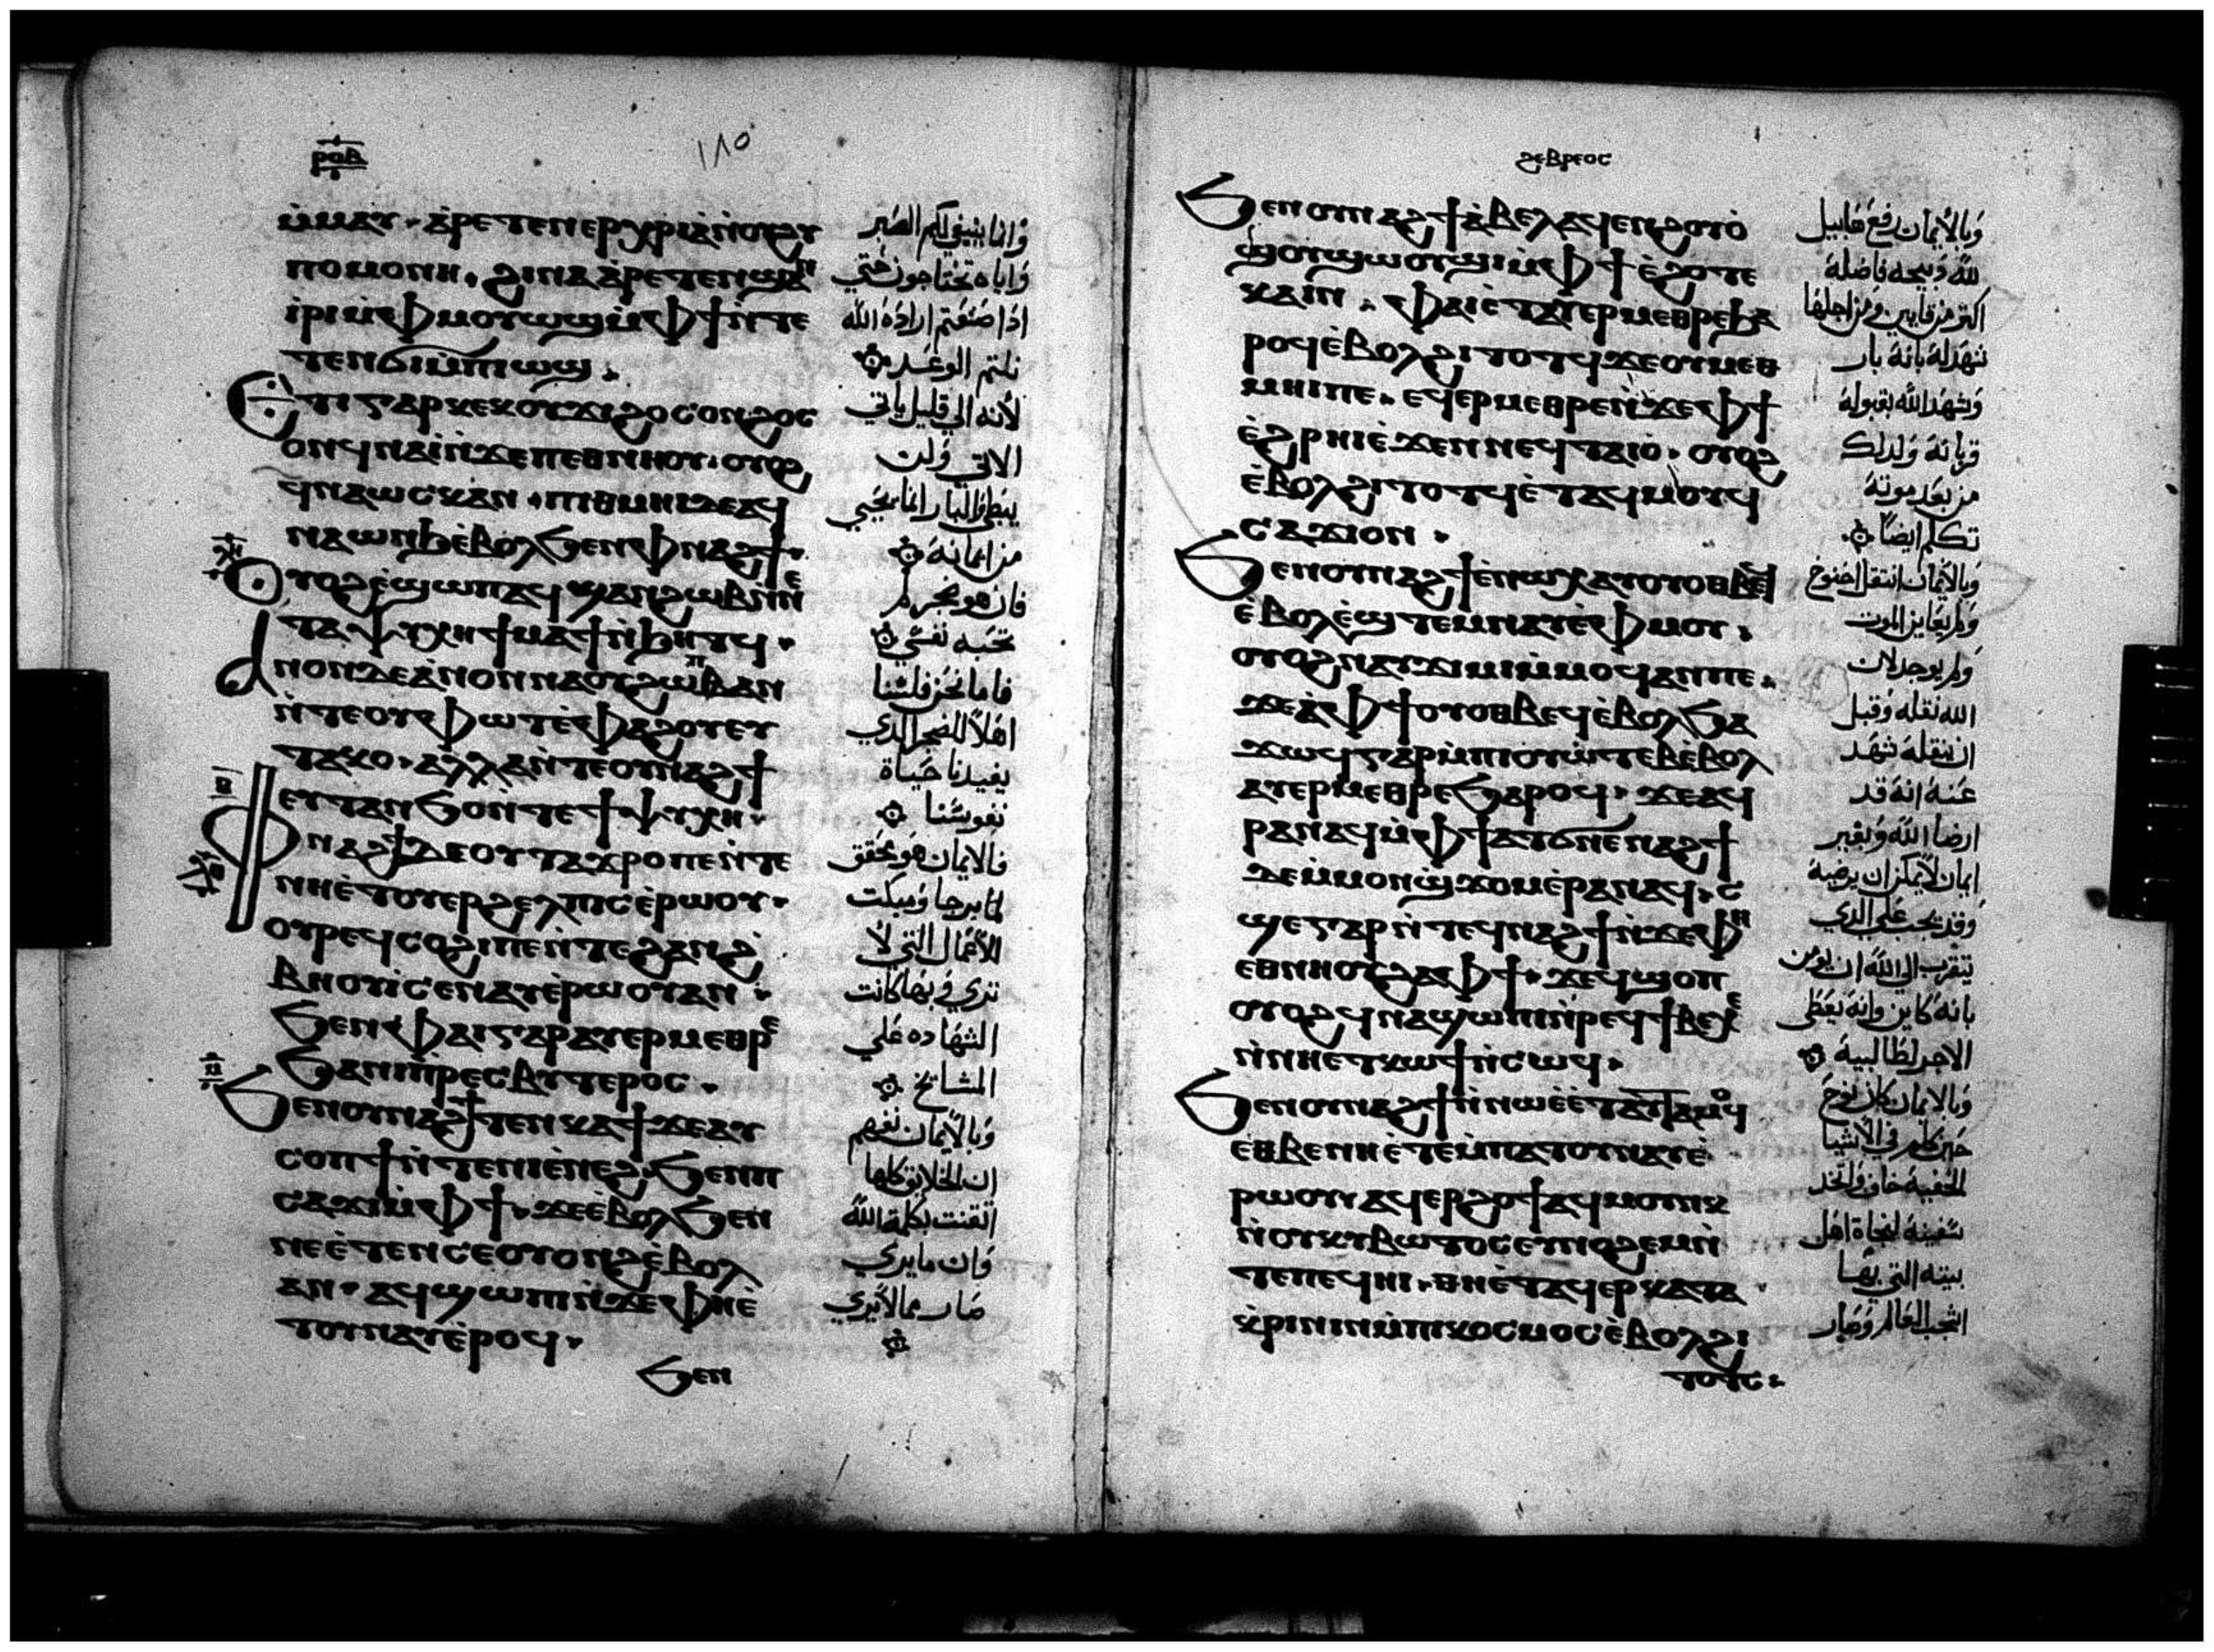 ⲣⲟⲃ
١٨٥
ⲙ̇ⲙⲁⲩ · ⲁ̇ⲣⲉⲧⲉⲛⲉⲣⲭⲣⲓⲁ̀ⲛ̇ⲟⲩϩⲩ
ⲡⲟⲙⲟⲛⲏ · ϩⲓⲛⲁ ⲁ̀ⲣⲉⲧⲉⲛϣⲁⲛ
ⲓ̇ⲣⲓⲙ̇ⲫⲙⲟⲩⲱϣⲙ̇ⲫϯⲛ̇ⲧⲉ
ⲧⲉⲛϭⲓⲙ̇ⲡⲓⲱϣ ·
ⲉⲧⲓⲅⲁⲣⲕⲉⲕⲟⲩϫⲓϩⲟⲥⲟⲛϩⲟⲥ
ⲟⲛϥⲛⲁⲓ̀ⲛ̇ϫⲉⲡⲉⲑⲛⲏⲟⲩ · ⲟⲩⲟϩ
ϥⲛⲁⲱⲥⲕⲁⲛ · ⲡⲓⲑⲙⲏⲓⲇⲉⲁϥ
ⲛⲁⲱⲛϧⲉ̀ⲃⲟⲗϧⲉⲛⲫⲛⲁϩϯ ·
ⲟⲩⲟϩⲉ̀ϣⲱⲡⲁϥϣⲁⲛϩⲱⲃⲛ̇ⲛⲉ
ⲧⲁⲯⲩⲭⲏϯⲙⲁϯⲛ̇ϧⲏⲧϥ ·
ⲁⲛⲟⲛⲇⲉⲁ̀ⲛⲟⲛⲛⲁⲟⲩϩⲱⲡⲃⲁⲛ
ⲛ̇ⲧⲉⲟⲩⲫⲱⲧⲉ̀ⲫⲁϩⲟⲩⲉⲩ
ⲧⲁⲕⲟ · ⲁⲗⲗⲁⲛ̇ⲧⲉⲟⲩⲛⲁϩϯ
ⲉⲩⲧⲁⲛϧⲟⲛ̇ⲧⲉϯⲯⲩⲭⲏ ·
ⲫⲛⲁϩϯⲇⲉⲟⲩⲧⲁϫⲣⲟⲡⲉⲛ̇ⲧⲉ
ⲛⲏⲉ̀ⲧⲟⲩⲉⲣϩⲉⲗⲡⲓⲥⲉ̀ⲣⲱⲟⲩ ·
ⲟⲩⲣⲉϥⲥⲟϩⲓⲡⲉⲛ̇ⲧⲉϩⲁⲛϩ
ⲃⲏⲟⲩⲓ̀ⲥⲉⲛⲁⲩⲉ̀ⲣⲱⲟⲩⲁⲛ ·
ϧⲉⲛⲫⲁⲓⲅⲁⲣⲁⲩⲉⲣⲙⲉⲑⲣⲉ
ϧⲁⲛⲓⲡ̇ⲣⲉⲥⲃⲩⲧⲉⲣⲟⲥ ·
ϧⲉⲛⲟⲩⲛⲁϩϯⲧⲉⲛⲕⲁϯϫⲉⲁⲩ
ⲥⲟⲡϯⲛ̇ϫⲉⲛⲓⲉ̀ⲛⲉϩϧⲉⲛⲡ
ⲥⲁϫⲓⲙ̇ⲫϯ · ϫⲉⲉ̀ⲃⲟⲗϧⲉⲛ
ⲛⲉⲉ̀ⲧⲉⲛⲥⲉⲟⲩⲟⲛϩⲉ̀ⲃⲟⲗ
ⲁⲛ · ⲁϥϣⲱⲡⲓⲛ̇ϫⲉⲫⲏⲉ̀
ⲧⲟⲩⲛⲁⲩⲉ̀ⲣⲟϥ ·
ϧⲉⲛ
وانما ينبغي لكم الصبر
واياه تحتاجون حتي
اذا صنعتم ارادة الله
نلتم الوعد
لأنه الي قليل ياتي
الاتي ولن
يبطي فالبار انما يحيي
من ايمانه
فان هو تجرم
تحبه نفسي
فاما نحن فلسنا
اهلا للضجر الدي
يفيدنا حياة
نفوسنا
فالايمان هو تحقق
لما يرجا ومبكت
للاعمال التي لا
تري في بها كانت
الشهاده علي
المشايخ
وبالايمان نفهم
ان الخلايق كلها
اتقنت بكلمة الله
وان ما يري
صار مما لا يري
ϩⲉⲃⲣⲉⲟⲥ
ϧⲉⲛⲟⲩⲛⲁϩϯⲁ̀ⲃⲉⲗⲁϥⲉⲛϩⲟⲩⲟ̀
ϣⲟⲩϣⲱⲟⲩϣⲓⲙ̇ⲫϯⲉ̀ϩⲟⲧⲉ
ⲕⲁⲓⲛ · ⲫⲁⲓⲉ̀ⲧⲁⲩⲉⲣⲙⲉⲑⲣⲉϧⲁ
ⲣⲟϥⲉ̀ⲃⲟⲗϩⲓⲧⲟⲧϥϫⲉⲟⲩⲙⲉⲑ
ⲙⲏⲓⲡⲉ · ⲉϥⲉⲣⲙⲉⲑⲣⲉⲛ̇ϫⲉⲫϯ
ⲉ̀ϩⲣⲏⲓⲉ̀ϫⲉⲛⲛⲉϥⲧⲁⲓⲟ · ⲟⲩⲟϩ
ⲉ̀ⲃⲟⲗϩⲓⲧⲟⲧϥⲉ̀ⲧⲁϥⲙⲟⲩϥ
ⲥⲁϫⲓⲟⲛ ·
ϧⲉⲛⲟⲩⲛⲁϩϯⲉⲛⲱⲭⲁⲩⲟⲩⲟⲑⲃⲉϥ
ⲉ̀ⲃⲟⲗⲉ̀ϣⲧⲉⲙⲛⲁⲩⲉ̀ⲫⲙⲟⲩ ·
ⲟⲩⲟϩⲛⲁⲩϫⲓⲙⲓⲙ̇ⲙⲟϥⲁⲛⲡⲉ ·
ϫⲉⲁ̀ⲫϯⲟⲩⲟⲑⲃⲉϥⲉ̀ⲃⲟⲗϧⲁ
ϫⲱϥⲅⲁⲣⲙ̇ⲡⲓⲟⲩⲱ̇ⲧⲉⲃⲉ̀ⲃⲟⲗ
ⲁⲩⲉⲣⲙⲉⲑⲣⲉϧⲁⲣⲟϥ · ϫⲉⲁϥ
ⲣⲁⲛⲁϥⲙ̇ⲫϯⲁⲧϭⲛⲉⲛⲁϩϯ
ⲇⲉⲙ̇ⲙⲟⲛϣϫⲟⲙⲉ̀ⲣⲁⲛⲁϥ · ⲥ
ϣⲉⲅⲁⲣⲛ̇ⲧⲉϥⲛⲁϩϯⲛ̇ϫⲉⲫⲏ
ⲉⲑⲛⲏⲟⲩϩⲁⲫϯ · ϫⲉϥϣⲟⲡ
ⲟⲩⲟϩϥⲛⲁϣⲱⲡⲓⲛ̇ⲣⲉϥϯⲃⲉⲭⲉ
ⲛ̇ⲛⲏⲉⲧⲕⲱϯⲛ̇ⲥⲱϥ ·
ϧⲉⲛⲟⲩⲛⲁϩϯⲛ̇ⲛⲱⲉ̀ⲉ̀ⲧⲁⲩⲧⲁⲙⲟϥ
ⲉⲑⲃⲉⲛⲏⲉ̀ⲧⲉⲙ̇ⲡⲁⲧⲟⲩⲛⲁⲩⲉ̀
ⲣⲱⲟⲩ ⲁϥⲉⲣϩⲟϯⲁϥⲙⲟⲩⲛⲕ
ⲛ̇ⲟⲩⲕⲩⲃⲱⲧⲟⲥⲉⲡⲛⲟϩⲉⲙⲛ̇
ⲧⲉⲡⲉϥⲏⲓ · ⲑⲏⲉ̀ⲧⲁϥⲉⲣⲕⲁⲧⲁ
ⲕ̇ⲣⲓⲛⲓⲛⲙ̇ⲡⲓⲕⲟⲥⲙⲟⲥⲉ̀ⲃⲟⲗϩⲓ
ⲧⲟⲧⲥ ·
وبالايمان رفع هابيل
لله دبيحه فاضله
اكتر من قايين ومن اجلها
شهد له بانه بار
وشهد الله بقبوله
قربانه ولدلك
من بعد موته
تكلم ايضا
وبالايمان انتقل اخنوخ
ولم يعاين الموت
ولم يوجد لان
الله نقله وقبل
ان ينقله شهد
عنه انه قد
ارضا الله وبغير
ايمان لا يمكن ان يرضيه
وقد يجب علي الدي
يتقرب الي الله ان يومن
بانه كاين وانه يعطي
الاجر لطالبيه
وبالايمان كان نوح
حين كلم في الاشيا
الخفيه خاف واتخد
سفينه لنجاة اهل
بيته التي بها
اشجب العالم وصار